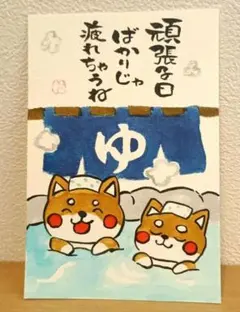 頑張る日
ばかりじゃ
疲れちゃうね
ゆ